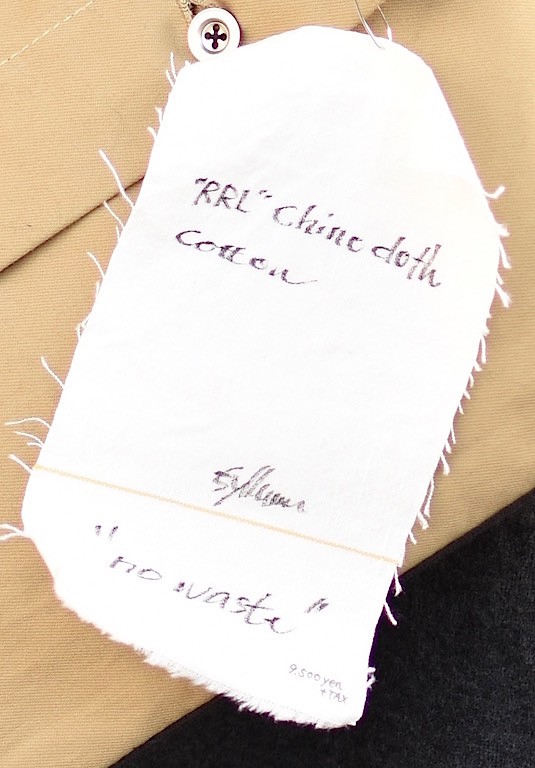 "RRL" Chino cloth
cotton
"no waste"
9.500 yen
+TAX